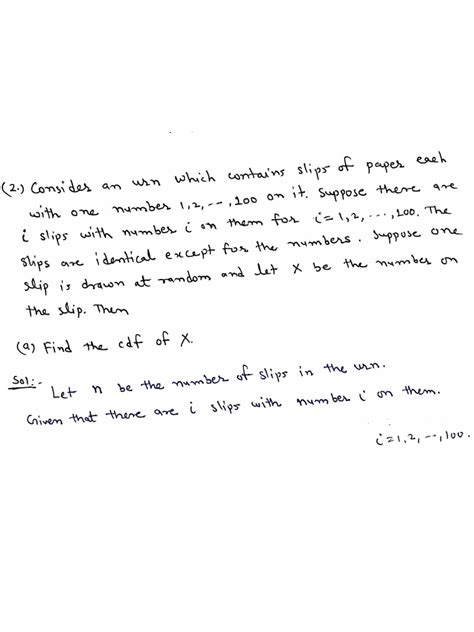 (2.) Consider an urn which contains slips of paper each
with one number 1,2,--,100 on it. Suppose there are
i slips with number i on them for i=1,2,...,100. The
slips are identical except for the numbers. Suppose one
slip is drawn at random and let X be the number on
the slip. Then
(a) Find the cdf of X.
Sol:- Let n be the number of slips in the urn.
Given that there are i slips with number i on them.
i=1,2,--,100.